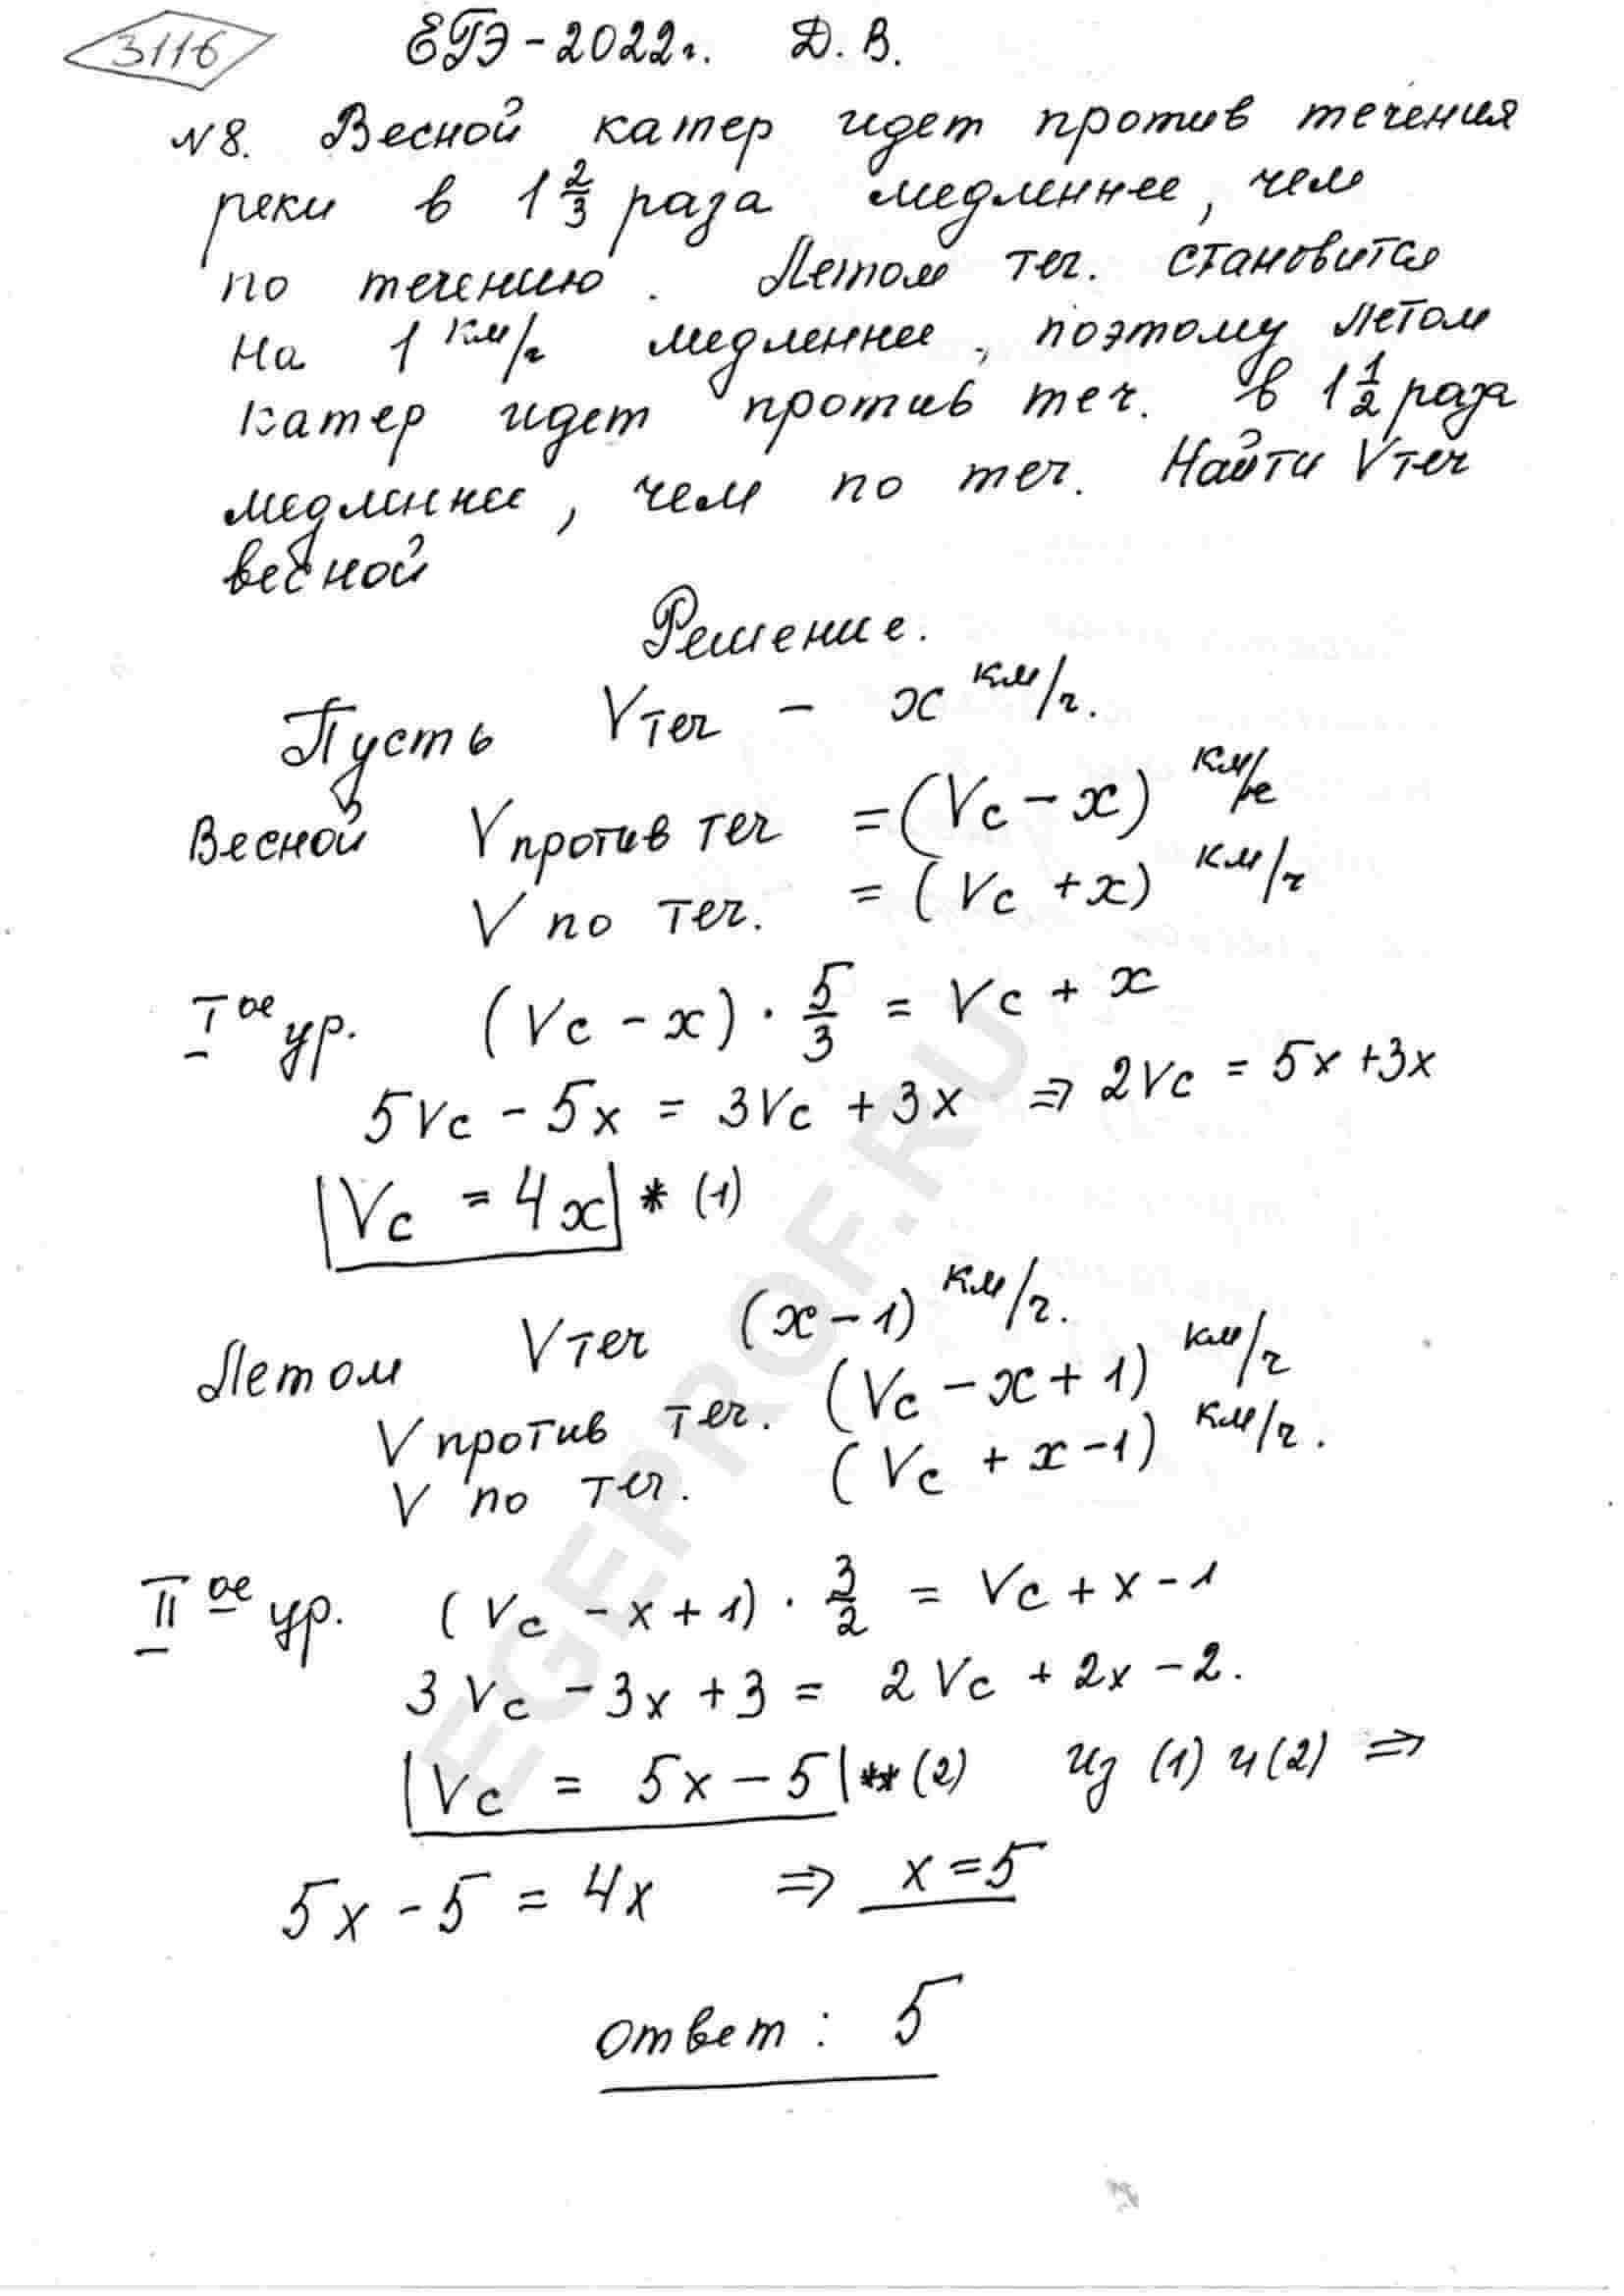 3116
ЕГЭ - 2022г. Д. В.
№8. Весной катер идет против течения
реки в 1 2/3 раза медленнее, чем
по течению. Летом теч. становится
на 1 км/ч медленнее, поэтому летом
катер идет против теч. в 1 1/2 раза
медленнее, чем по теч. Найти Vтеч
весной
Решение.
Пусть Vтеч - x км/ч.
Весной V против теч = (Vc - x) км/ч
V по теч. = (Vc + x) км/ч
I ое ур. (Vc - x) · 5/3 = Vc + x
5Vc - 5x = 3Vc + 3x ⇒ 2Vc = 5x + 3x
|Vc = 4x| * (1)
Летом Vтеч (x - 1) км/ч.
V против теч. (Vc - x + 1) км/ч
V по теч. (Vc + x - 1) км/ч.
II ое ур. (Vc - x + 1) · 3/2 = Vc + x - 1
3Vc - 3x + 3 = 2Vc + 2x - 2.
|Vc = 5x - 5| ** (2) из (1) и (2) ⇒
5x - 5 = 4x ⇒ x = 5
ответ: 5
EGEPROF.RU